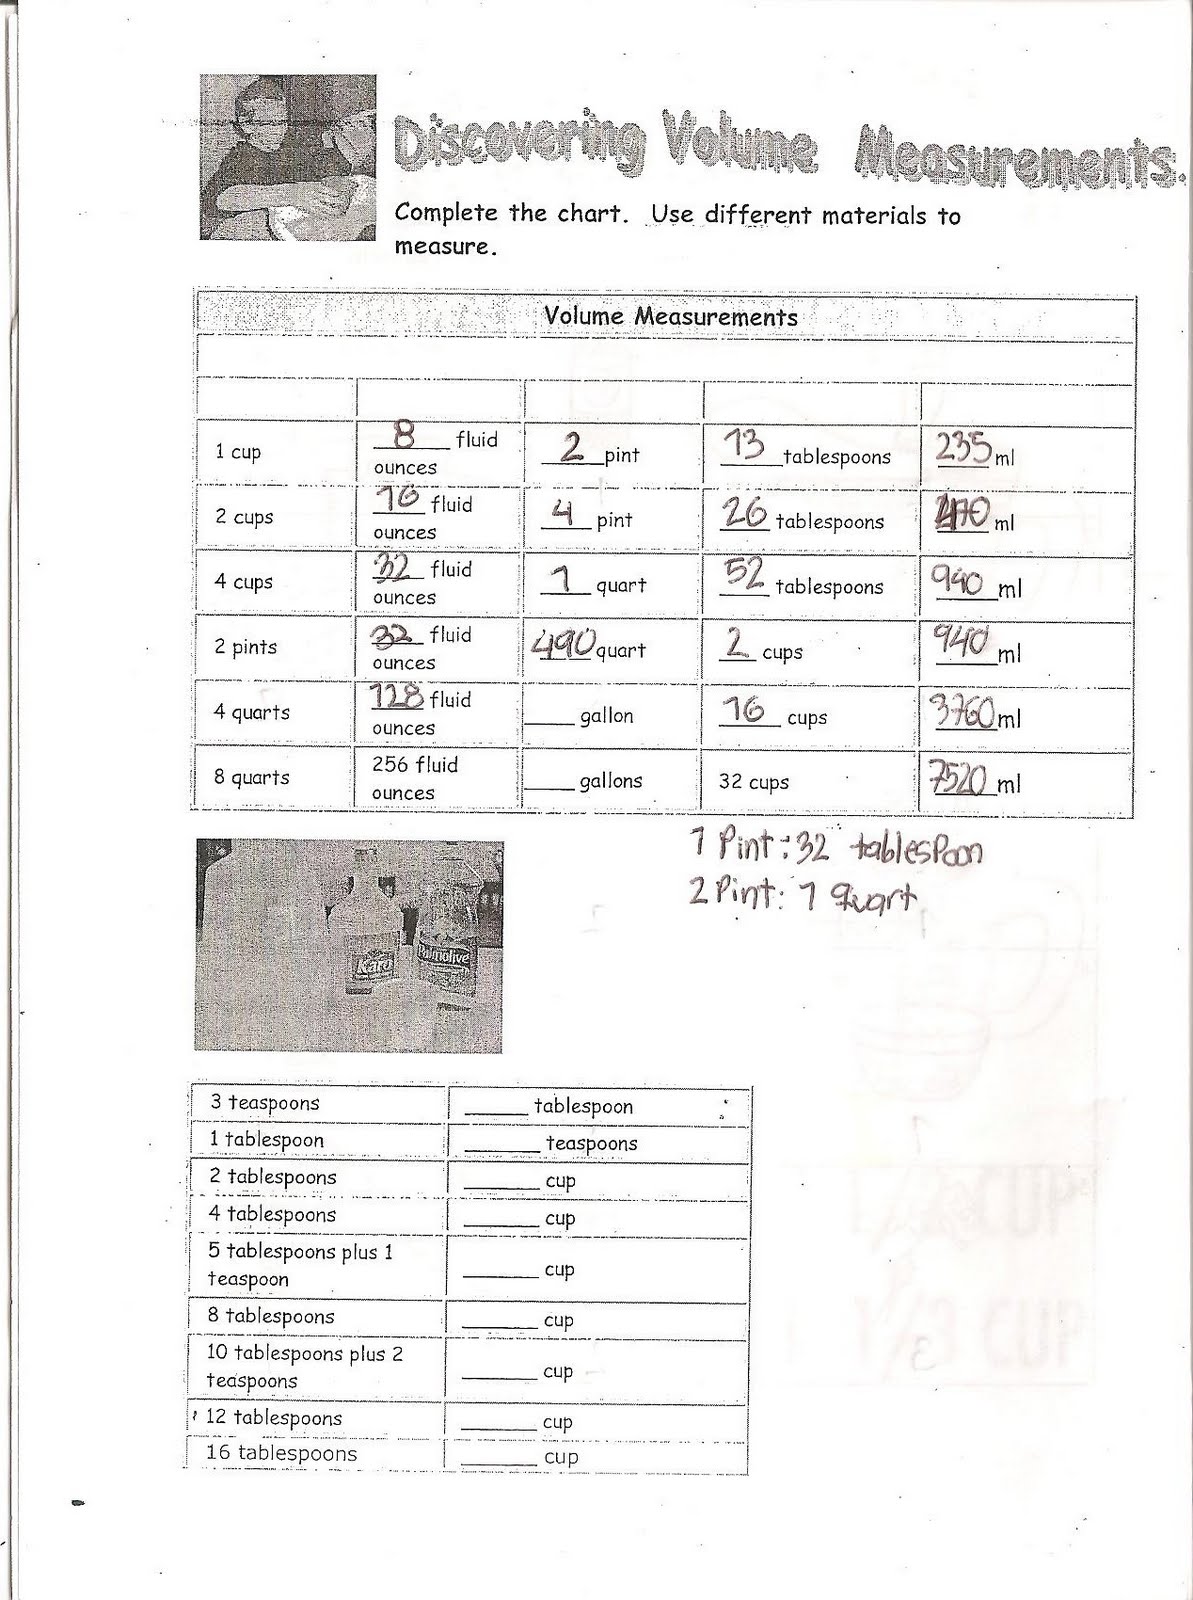 Discovering Volume Measurements.
Complete the chart. Use different materials to
measure.
Volume Measurements
1 cup
8 fluid
ounces
2 pint
13 tablespoons
235 ml
2 cups
16 fluid
ounces
4 pint
26 tablespoons
470 ml
4 cups
32 fluid
ounces
1 quart
52 tablespoons
940 ml
2 pints
32 fluid
ounces
490 quart
2 cups
940 ml
4 quarts
128 fluid
ounces
____ gallon
16 cups
3760 ml
8 quarts
256 fluid
ounces
____ gallons
32 cups
7520 ml
1 Pint: 32 tablespoon
2 Pint: 1 Quart
Karo
Palmolive
3 teaspoons
_____ tablespoon
1 tablespoon
______ teaspoons
2 tablespoons
______ cup
4 tablespoons
______ cup
5 tablespoons plus 1
teaspoon
______ cup
8 tablespoons
______ cup
10 tablespoons plus 2
teaspoons
______ cup
12 tablespoons
______ cup
16 tablespoons
______ cup